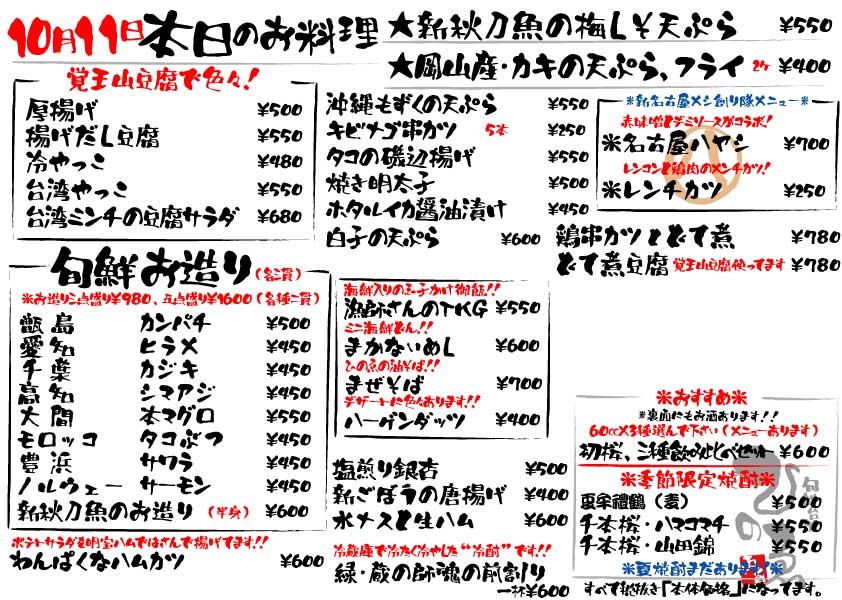 10月11日 本日のお料理
★新秋刀魚の梅しそ天ぷら ¥550
★岡山産・カキの天ぷら、フライ 2ケ ¥400
覚王山豆腐で色々！
厚揚げ ¥500
揚げだし豆腐 ¥550
冷やっこ ¥480
台湾やっこ ¥550
台湾ミンチの豆腐サラダ ¥680
沖縄もずくの天ぷら ¥550
キビナゴ串カツ 5本 ¥250
タコの磯辺揚げ ¥550
焼き明太子 ¥500
ホタルイカ醤油漬け ¥450
白子の天ぷら ¥600
※新名古屋メシ創り隊メニュー※
赤味噌とデミソースがコラボ！
※名古屋ハヤシ ¥700
レンコンと鶏肉のメンチカツ！
※レンチカツ ¥250
鶏串カツとどて煮 ¥780
どて煮豆腐 覚王山豆腐使ってます ¥780
旬鮮お造り（各二貫）
※お造り三点盛り¥980、五点盛り¥1600（各種二貫）
甑島 カンパチ ¥500
愛知 ヒラメ ¥450
千葉 カジキ ¥450
高知 シマアジ ¥450
大間 本マグロ ¥550
モロッコ タコぶつ ¥450
豊浜 サワラ ¥450
ノルウェー サーモン ¥450
新秋刀魚のお造り（半身） ¥600
ポテトサラダを明宝ハムではさんで揚げてます！！
わんぱくなハムカツ ¥600
海鮮入りの玉子かけ御飯！！
漁師さんのTKG ¥550
ミニ海鮮どん！！
まかないめし ¥600
ひの魚の油そば！！
まぜそば ¥700
デザートに色々あります！！
ハーゲンダッツ ¥400
塩煎り銀杏 ¥500
新ごぼうの唐揚げ ¥400
水ナスと生ハム ¥600
冷蔵庫で冷たく冷やした“冷酎”です！！
緑・蔵の師魂の前割り
一杯¥600
※おすすめ※
※裏面にもお酒あります！！
60cc×3種選んで下さい（メニューあります）
初桜、三種飲み比べセット ¥600
※季節限定焼酎※
（麦） ¥500
千本桜・ハマコマチ ¥550
千本桜・山田錦 ¥550
※夏焼酎まだあります！※
すべて税抜き「本体価格」になってます。